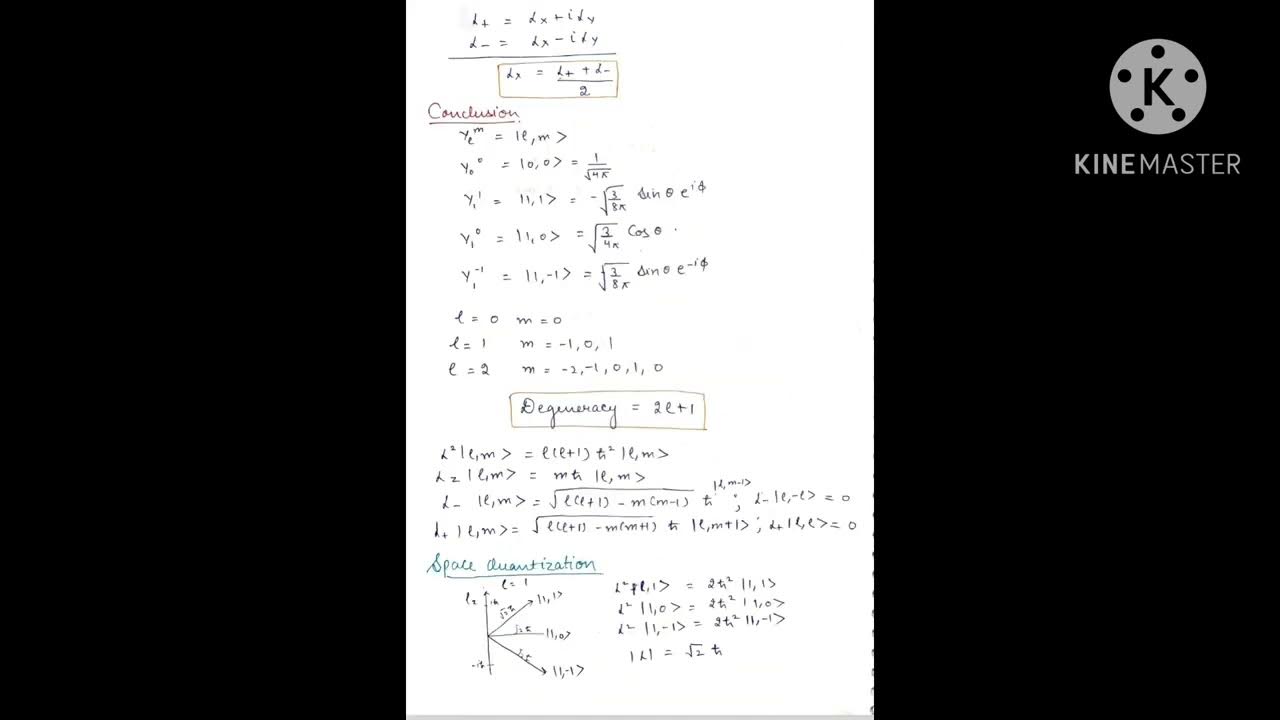 L+ = Lx + iLy
L- = Lx - iLy
Lx = L+ + L- / 2
Conclusion
Yₗᵐ = |ℓ, m>
Y₀⁰ = |0, 0> = 1/√4π
Y₁¹ = |1, 1> = -√3/8π Sinθ e^iφ
Y₁⁰ = |1, 0> = √3/4π Cosθ .
Y₁⁻¹ = |1, -1> = √3/8π Sinθ e^-iφ
ℓ = 0 m = 0
ℓ = 1 m = -1, 0, 1
ℓ = 2 m = -2, -1, 0, 1, 0
Degeneracy = 2ℓ+1
L²|ℓ, m> = ℓ(ℓ+1) ħ² |ℓ, m>
Lz |ℓ, m> = mħ |ℓ, m>
L- |ℓ, m> = √ℓ(ℓ+1) - m(m-1) ħ |ℓ, m-1> ; L-|ℓ, -ℓ> = 0
L+ |ℓ, m> = √ℓ(ℓ+1) - m(m+1) ħ |ℓ, m+1> ; L+|ℓ, ℓ> = 0
Space Quantization
ℓ = 1
ℓz
1ħ
√2ħ
|1, 1>
√2ħ
|1, 0>
√2ħ
-1ħ
|1, -1>
L² |1, 1> = 2ħ² |1, 1>
L² |1, 0> = 2ħ² |1, 0>
L² |1, -1> = 2ħ² |1, -1>
|L| = √2 ħ
K
KINEMASTER